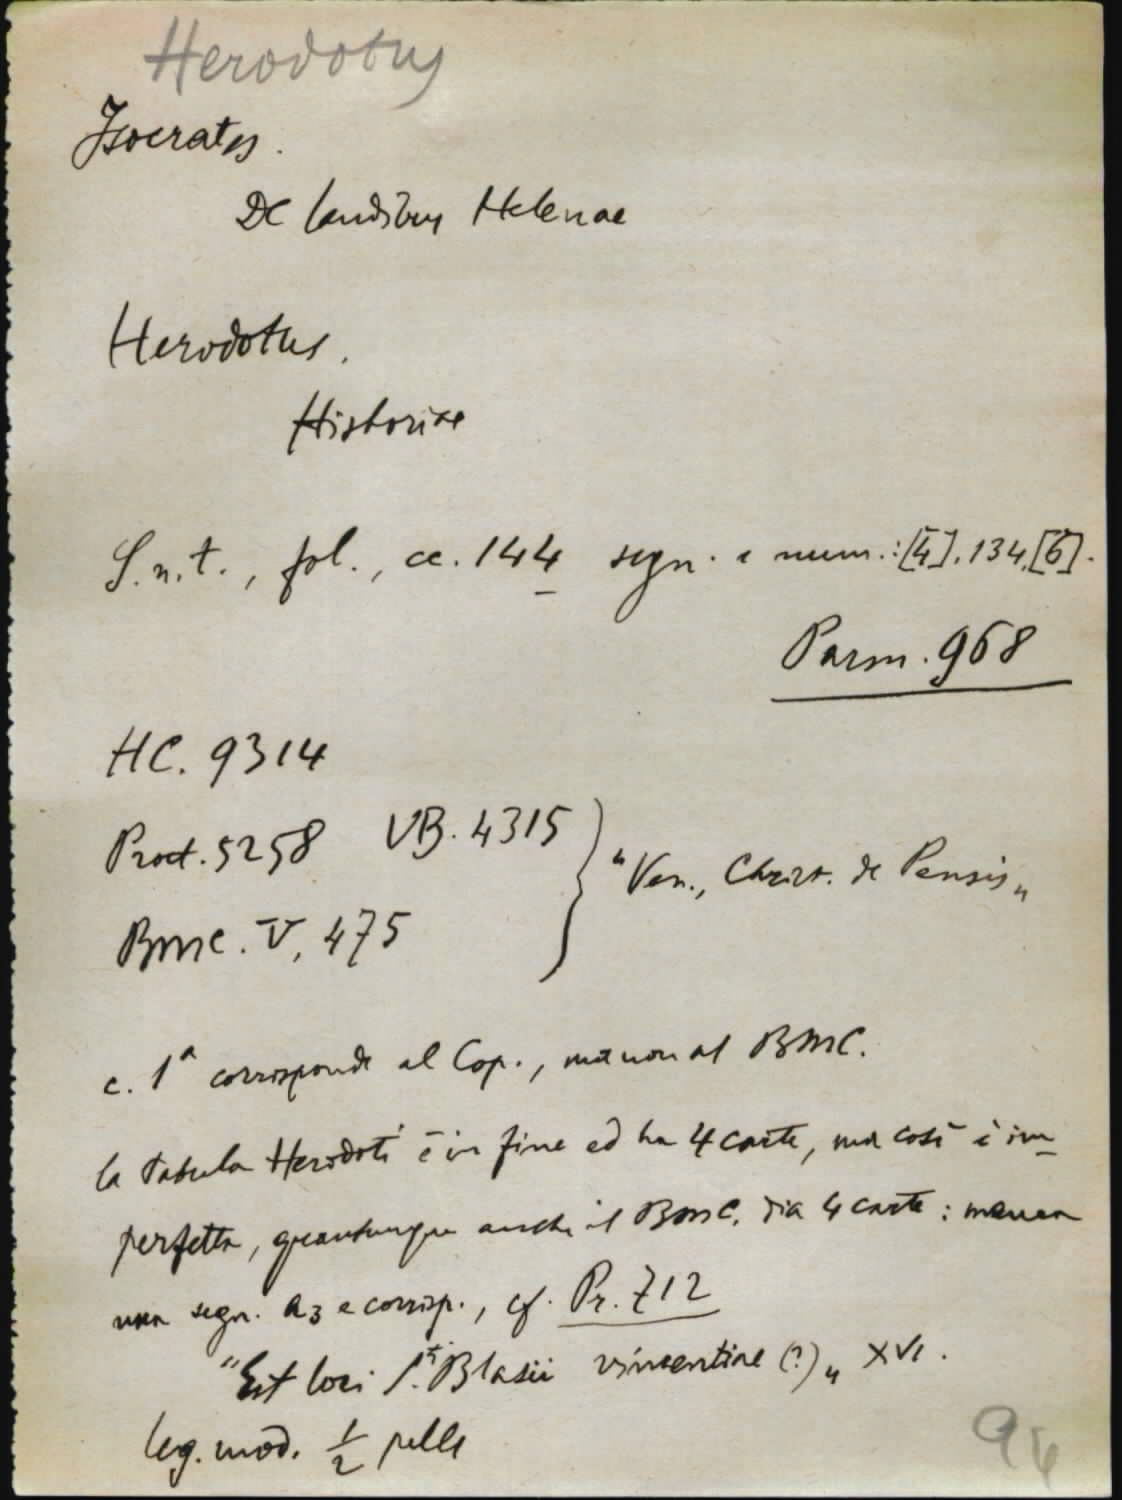 Herodotus
Isocrates.
De laudibus Helenae
Herodotus.
Historiae
S.n.t., fol., cc. 144 segn. e num.: [4].134.[6].
Parm. 968
HC. 9314
Proct. 5258 VB. 4315
"Ven., Christ. de Pensis"
BMC. V, 475
c. 1ª corrisponde al Cop., ma non al BMC.
la tabula Herodoti è in fine ed ha 4 carte, ma così è im-
perfetta, quantunque anche il BMC. dia 4 carte: manca
una segn. a3 e corrisp., cf. Pr. 712
"Est loci S.ti Blasii vincentiae (?)" XVI.
leg. mod. ½ pelle